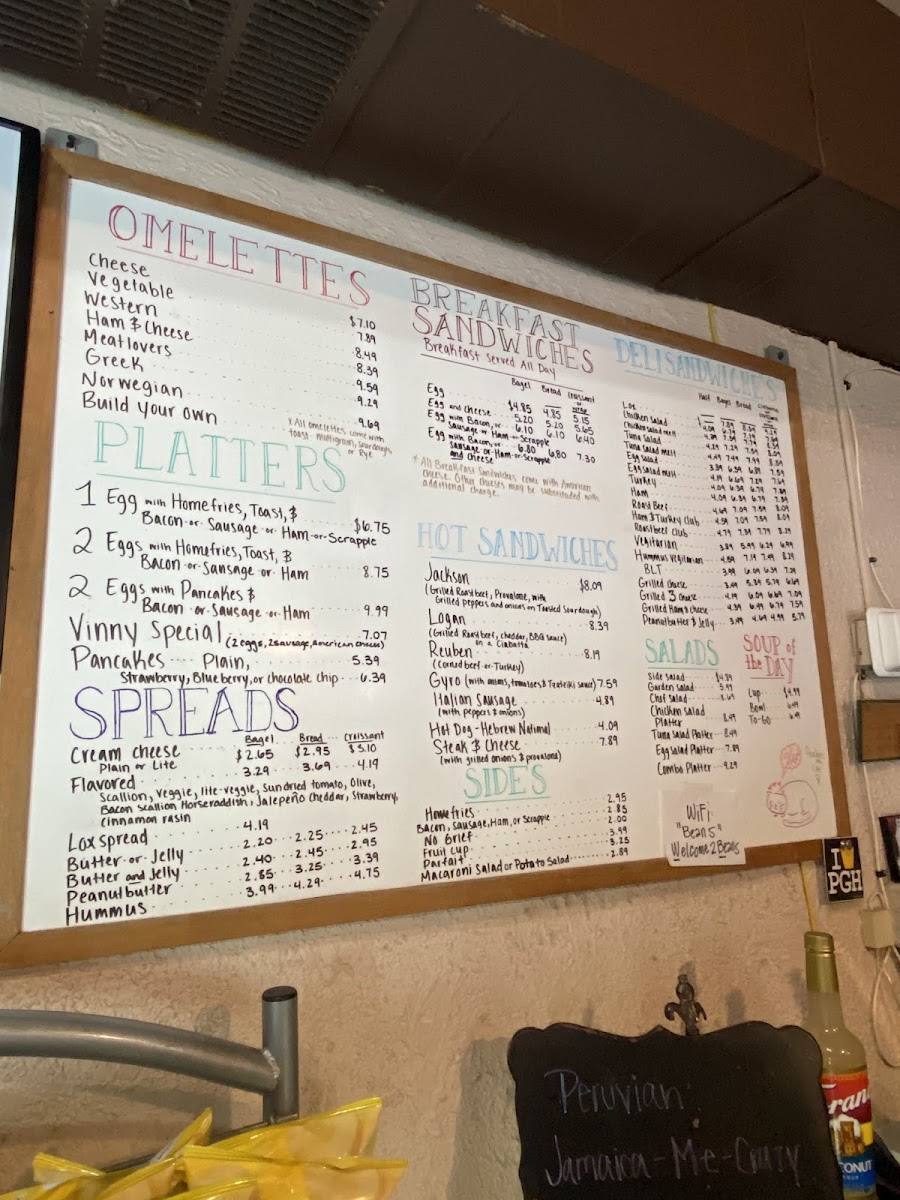 OMELETTES
Cheese $7.10
Vegetable 7.89
Western 8.49
Ham & Cheese 8.39
Meatlovers 9.59
Greek 9.29
Norwegian 9.69
Build your own
* All omelettes come with
toast - multigrain, sourdough,
or Rye
PLATTERS
1 Egg with Homefries, Toast, &
Bacon or Sausage or Ham or Scrapple $6.75
2 Eggs with Homefries, Toast, &
Bacon or Sansage or Ham 8.75
2 Eggs with Pancakes &
Bacon or Sausage or Ham 9.99
Vinny Special (2 eggs, 2 sausage, American cheese) 7.07
Pancakes Plain, 5.39
Strawberry, Blueberry, or chocolate chip 6.39
SPREADS
Bagel Bread Croissant
Cream cheese $2.65 $2.95 $3.10
Plain or Lite
Flavored 3.29 3.69 4.19
Scallion, Veggie, lite-veggie, sun dried tomato, Olive,
Bacon Scallion Horseraddish, Jalepeño Cheddar, Strawberry,
Cinnamon rasin
Lox spread 4.19
Butter or Jelly 2.20 2.25 2.45
Butter and Jelly 2.40 2.45 2.95
Peanutbutter 2.85 3.25 3.39
Hummus 3.99 4.29 4.75
BREAKFAST
SANDWICHES
Breakfast Served All Day
Bagel Bread Croissant
or
Egg $4.85 4.85 5.15
Egg and Cheese 5.20 5.20 5.65
Egg with Bacon, or 6.10 6.10 6.40
Sausage or Ham or Scrapple
Egg with Bacon, or 6.80 6.80 7.30
Sausage or Ham or Scrapple
and Cheese
* All Breakfast Sandwiches come with American
cheese. Other cheeses may be substituted with
additional charge.
HOT SANDWICHES
Jackson $8.09
(Grilled Roast beef, Provalone, with
Grilled peppers and onions on Toasted Sourdough)
Logan 8.39
(Grilled Roast beef, cheddar, BBQ sauce)
on a Ciabatta
Reuben 8.19
(Corned beef or Turkey)
Gyro (with onions, tomatoes & Tzatziki sauce) 7.59
Italian Sausage 4.89
(with peppers & onions)
Hot Dog - Hebrew National 4.09
Steak & Cheese 7.89
(with grilled onions & provalone)
SIDES
Homefries 2.95
Bacon, Sausage, Ham, or Scrapple 2.85
No Grief 2.00
Fruit Cup 3.99
Parfait 3.25
Macaroni Salad or Potato Salad 2.89
DELI SANDWICHES
Half Bagel Bread
Lox
Chicken salad
Chicken salad melt
Tuna Salad
Tuna salad melt
Egg salad
Egg salad melt
Turkey
Ham
Roast Beef
Ham & Turkey Club
Roast beef club
Vegitarian
Hummus vegitarian
BLT
Grilled cheese
Grilled 3 cheese
Grilled Ham & cheese
Peanutbutter & Jelly
SALADS
Side salad $4.39
Garden salad 5.99
Chef salad 8.69
Chicken salad
Platter 8.49
Tuna salad Platter 8.49
Egg salad Platter 7.89
Combo Platter 9.29
SOUP of
the DAY
Cup $4.99
Bowl 6.49
To-Go 6.49
WiFi
"Bean5"
Welcome2Beans
I
PGH
Peruvian
Jamaica-Me-Crazy